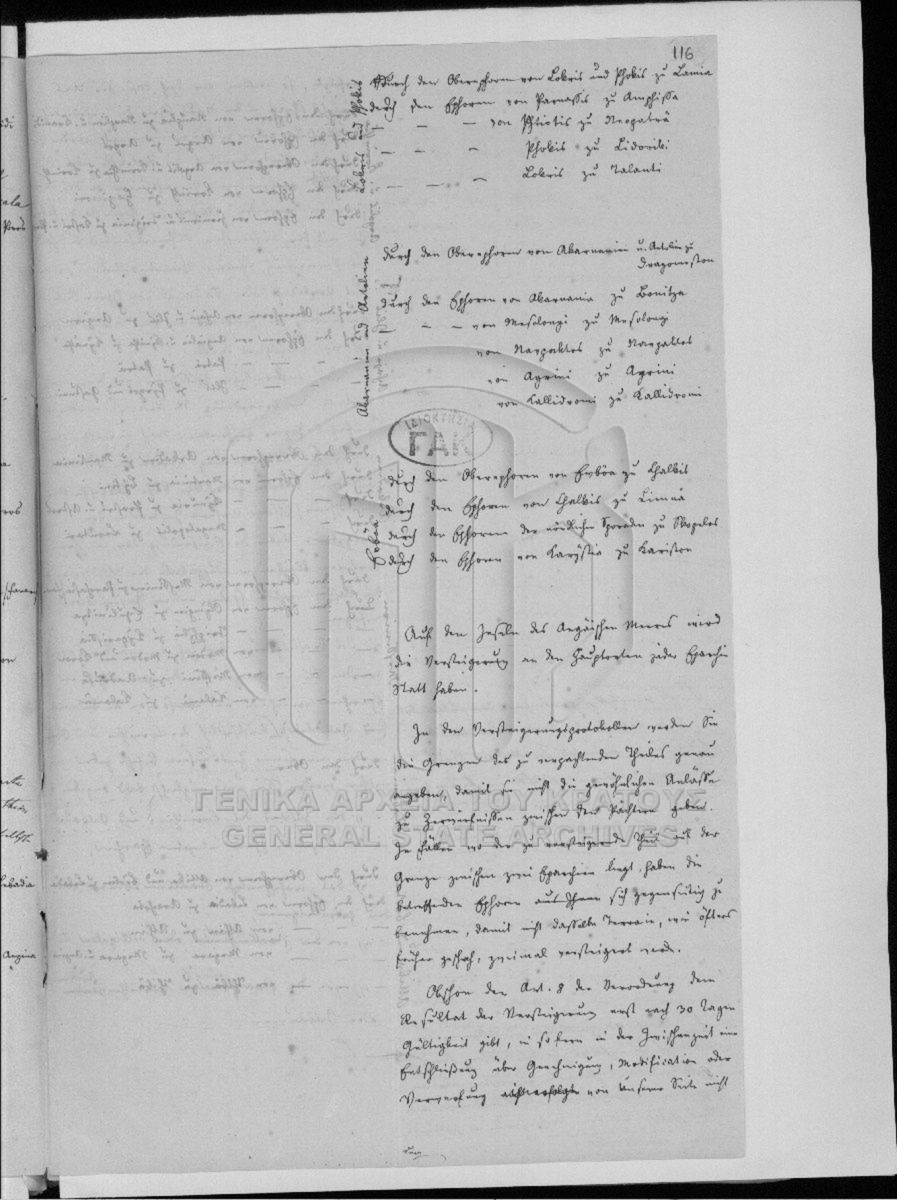 116
Lokris und Phokis
durch den Oberephoren von Lokris und Phokis zu Lamia
durch den Ephoren von Parnassis zu Amphissa
— — — von Phtiotis zu Neopaträ
— — — Phokis zu Lidoriki
— — — Lokris zu Talanti
Akarnanien und Aetolien
durch den Oberephoren von Akarnanien u. Aetolien zu
Dragomeston
durch den Ephoren von Akarnania zu Bonitza
— — von Mesolongi zu Mesolongi
von Navpaktos zu Navpaktos
von Agrini zu Agrini
von Kallidromi zu Kallidromi
ΙΔΙΟΚΤΗΣΙΑ
ΓΑΚ
Eoböa
durch den Oberephoren von Euböa zu Chalkis
durch den Ephoren von Chalkis zu Limnä
durch den Ephoren der nördlichen Sporaden zu Skopelos
durch den Ephoren von Karystia zu Kariston
Auf den Inseln des Aegäischen Meeres wird
die Versteigerung an den Hauptorten jeder Eparchie
Statt haben.
In den Versteigerungsprotokollen werden Sie
die Grenzen des zu verpachtenden Theiles genau
angeben, damit sie nicht die gewöhnlichen Anlässe
zu Zerwürfnissen zwischen den Pächtern geben.
ΓΕΝΙΚΑ ΑΡΧΕΙΑ ΤΟΥ ΚΡΑΤΟΥΣ
GENERAL STATE ARCHIVES
In Fällen wo der zu versteigernde Theil auf der
Grenze zwischen zwei Eparchien liegt, haben die
betreffenden Ephoren sich gegenseitig zu
benehmen, damit nicht dasselbe Terrain, wie öfters
früher geschah, zweimal versteigert werde.
Obschon der Art. 8 der Verordnung dem
Resultat der Versteigerung erst nach 30 Tagen
Gültigkeit gibt, in so fern in der Zwischenzeit eine
Entschließung über Genehmigung, Modification oder
Verwerfung von Unserer Seite nicht